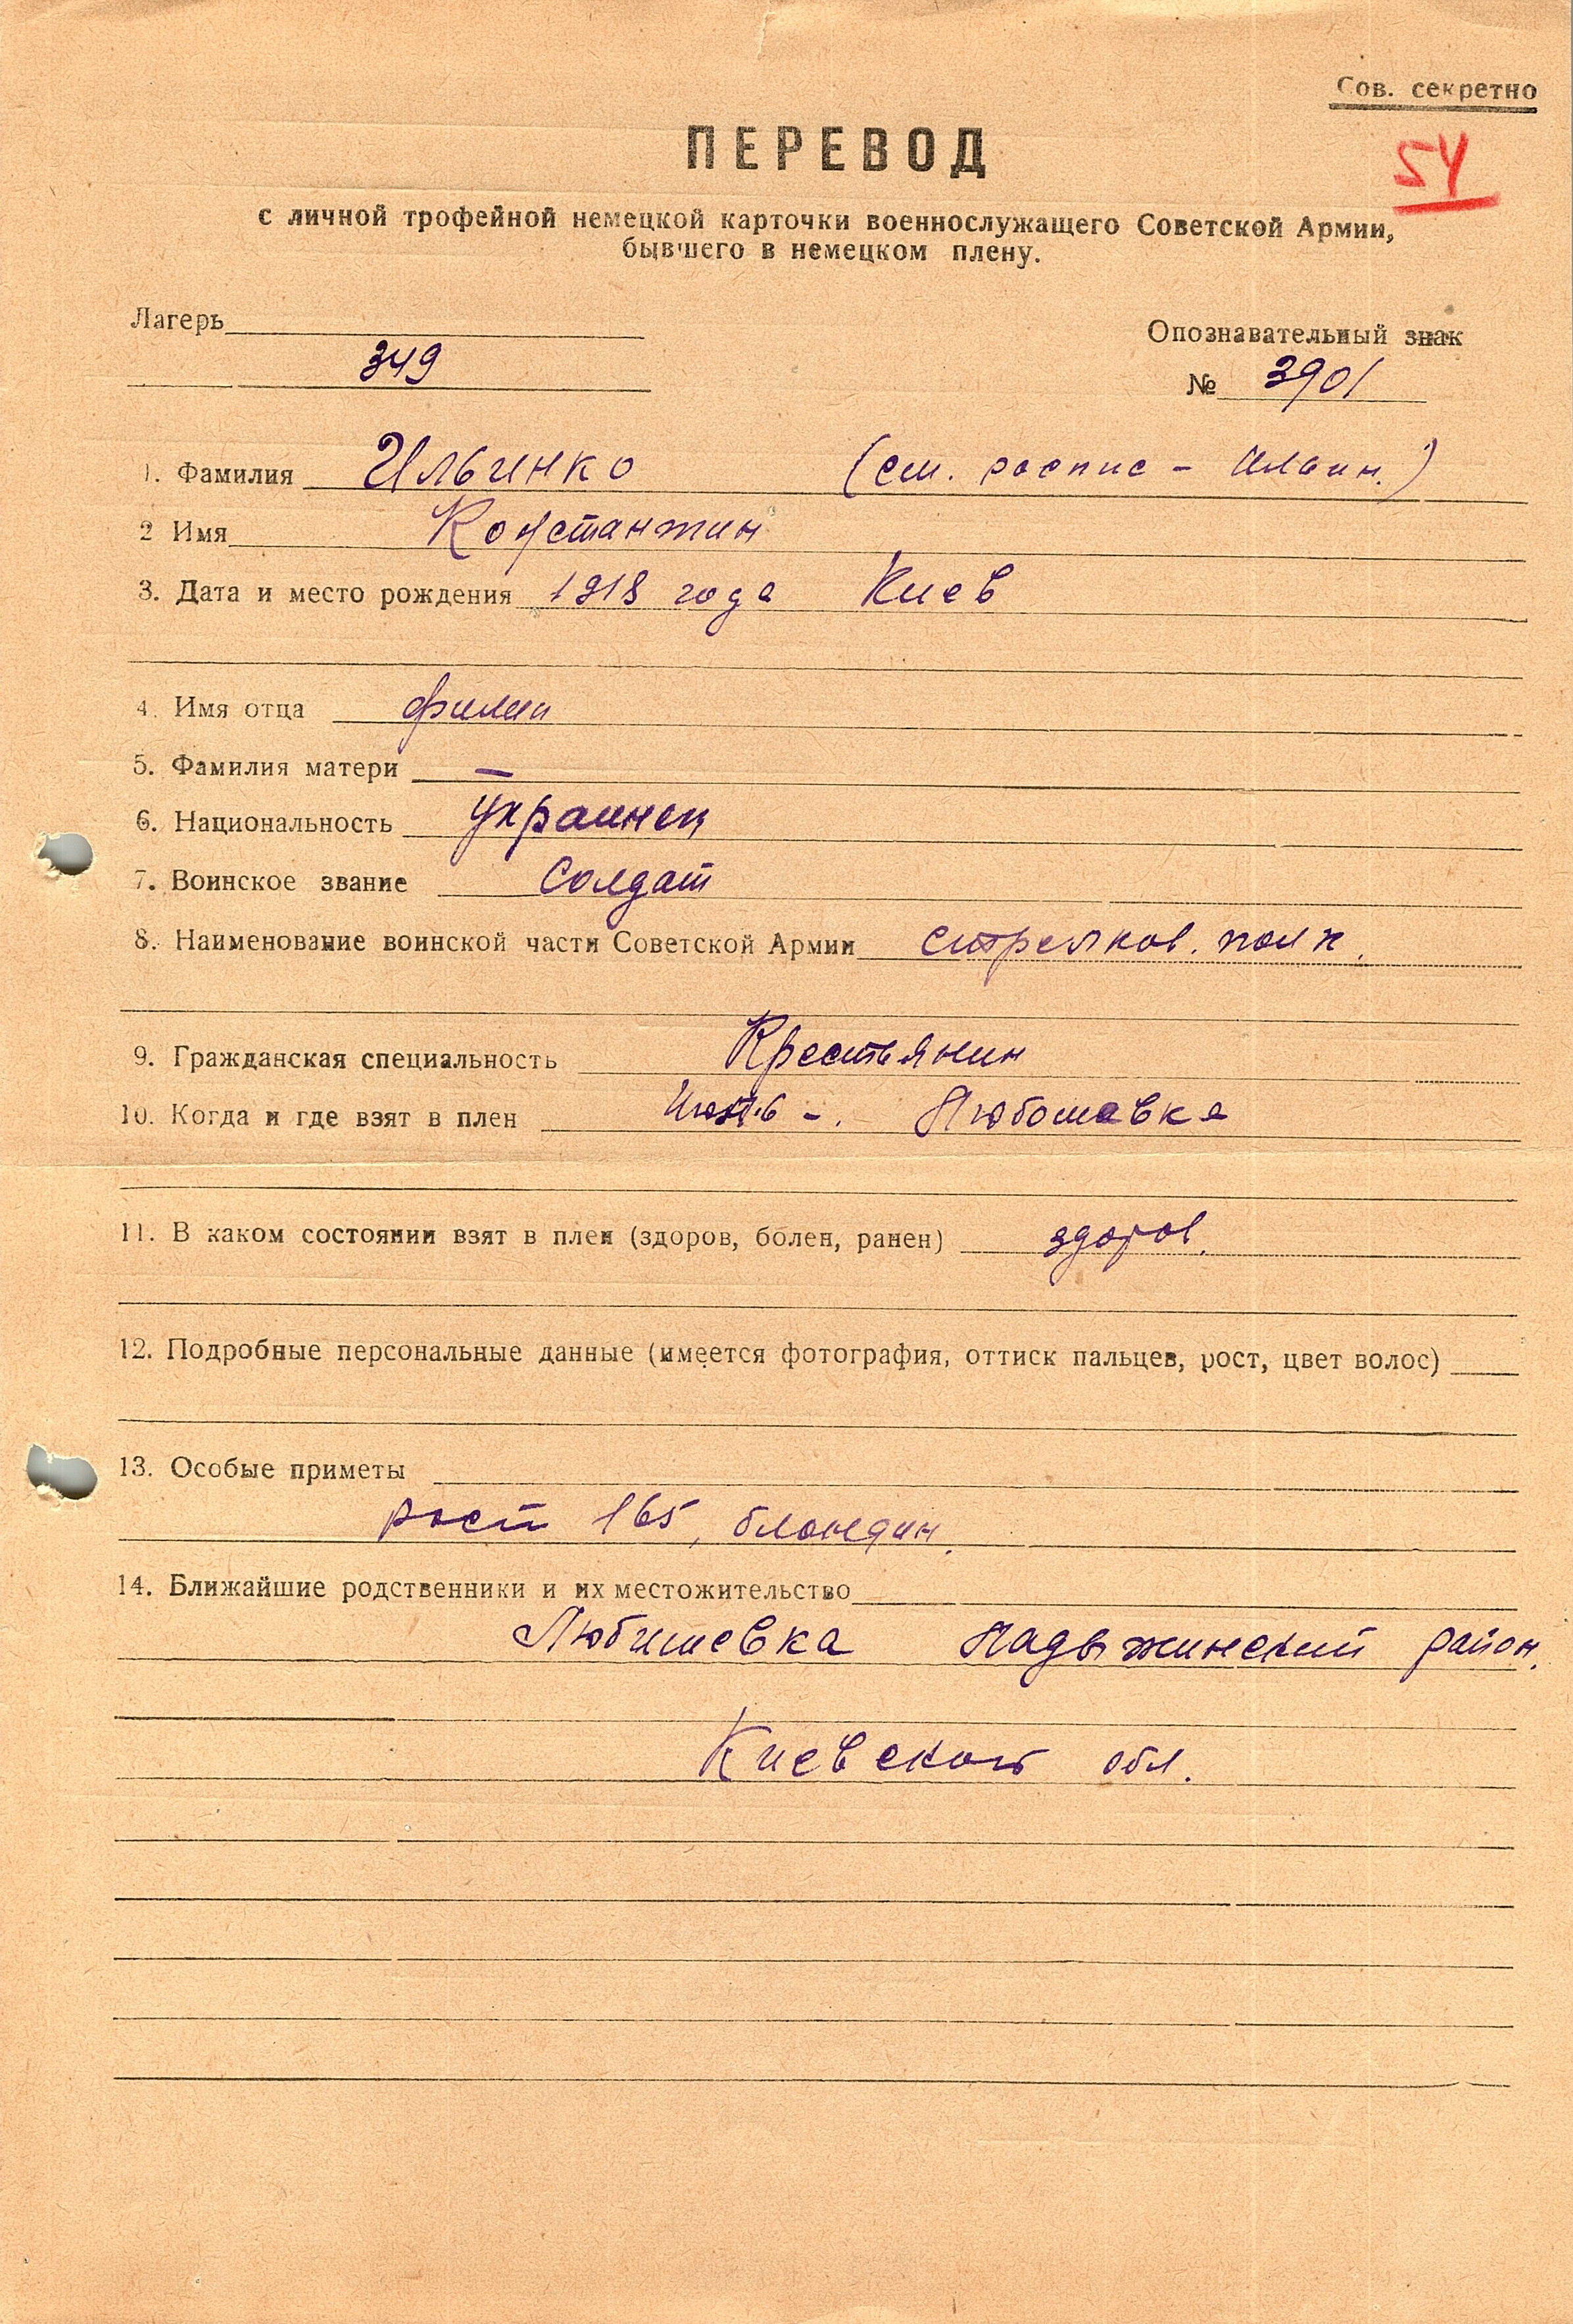 Сов. секретно
ПЕРЕВОД
54
с личной трофейной немецкой карточки военнослужащего Советской Армии,
бывшего в немецком плену.
Лагерь
Опознавательный знак
349
№ 3901
1. Фамилия Ильинко (см. роспис - Ильин.)
2 Имя Константин
3. Дата и место рождения 1918 года Киев
4. Имя отца Филип
5. Фамилия матери —
6. Национальность Украинец
7. Воинское звание Солдат
8. Наименование воинской части Советской Армии стрелков. полк.
9. Гражданская специальность Крестьянин
10. Когда и где взят в плен Любошевка
11. В каком состоянии взят в плен (здоров, болен, ранен) здоров.
12. Подробные персональные данные (имеется фотография, оттиск пальцев, рост, цвет волос)
13. Особые приметы
рост 165, блондин.
14. Ближайшие родственники и их местожительство
Любишевка Ладыжинский район.
Киевской обл.